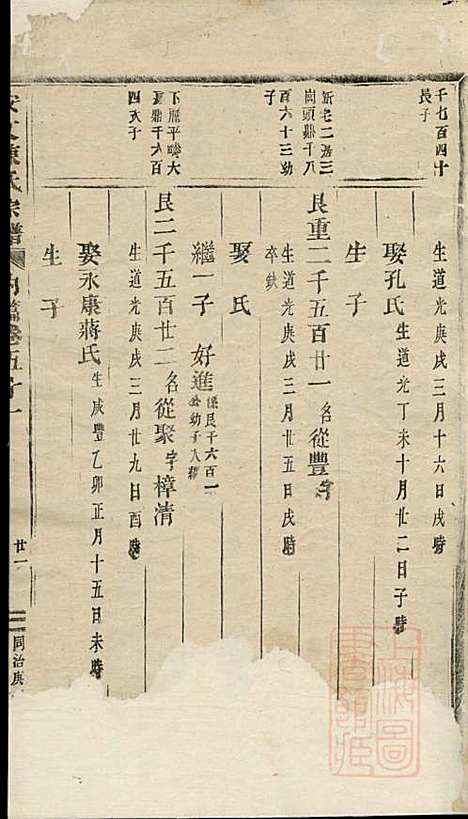 千七百四十
長子
生道光庚戌三月十六日戌時
娶孔氏 生道光丁未十月廿二日子時
生子
新宅二派三
崗頭鼎千八
百六十三幼
子
良重二千五百廿一 名從豐 字
生道光庚戌三月廿五日戌時
卒缺
娶氏
繼一子 好進 係良千六百一
公幼子入繼
下應平時大
四次子
良二千五百廿二 名從聚 字樟清
生道光庚戌三月廿九日酉時
娶永康蔣氏 生咸豐乙卯正月十五日未時
生子
陳氏宗譜 卷五十一 廿一 同治庚
上海圖書館藏